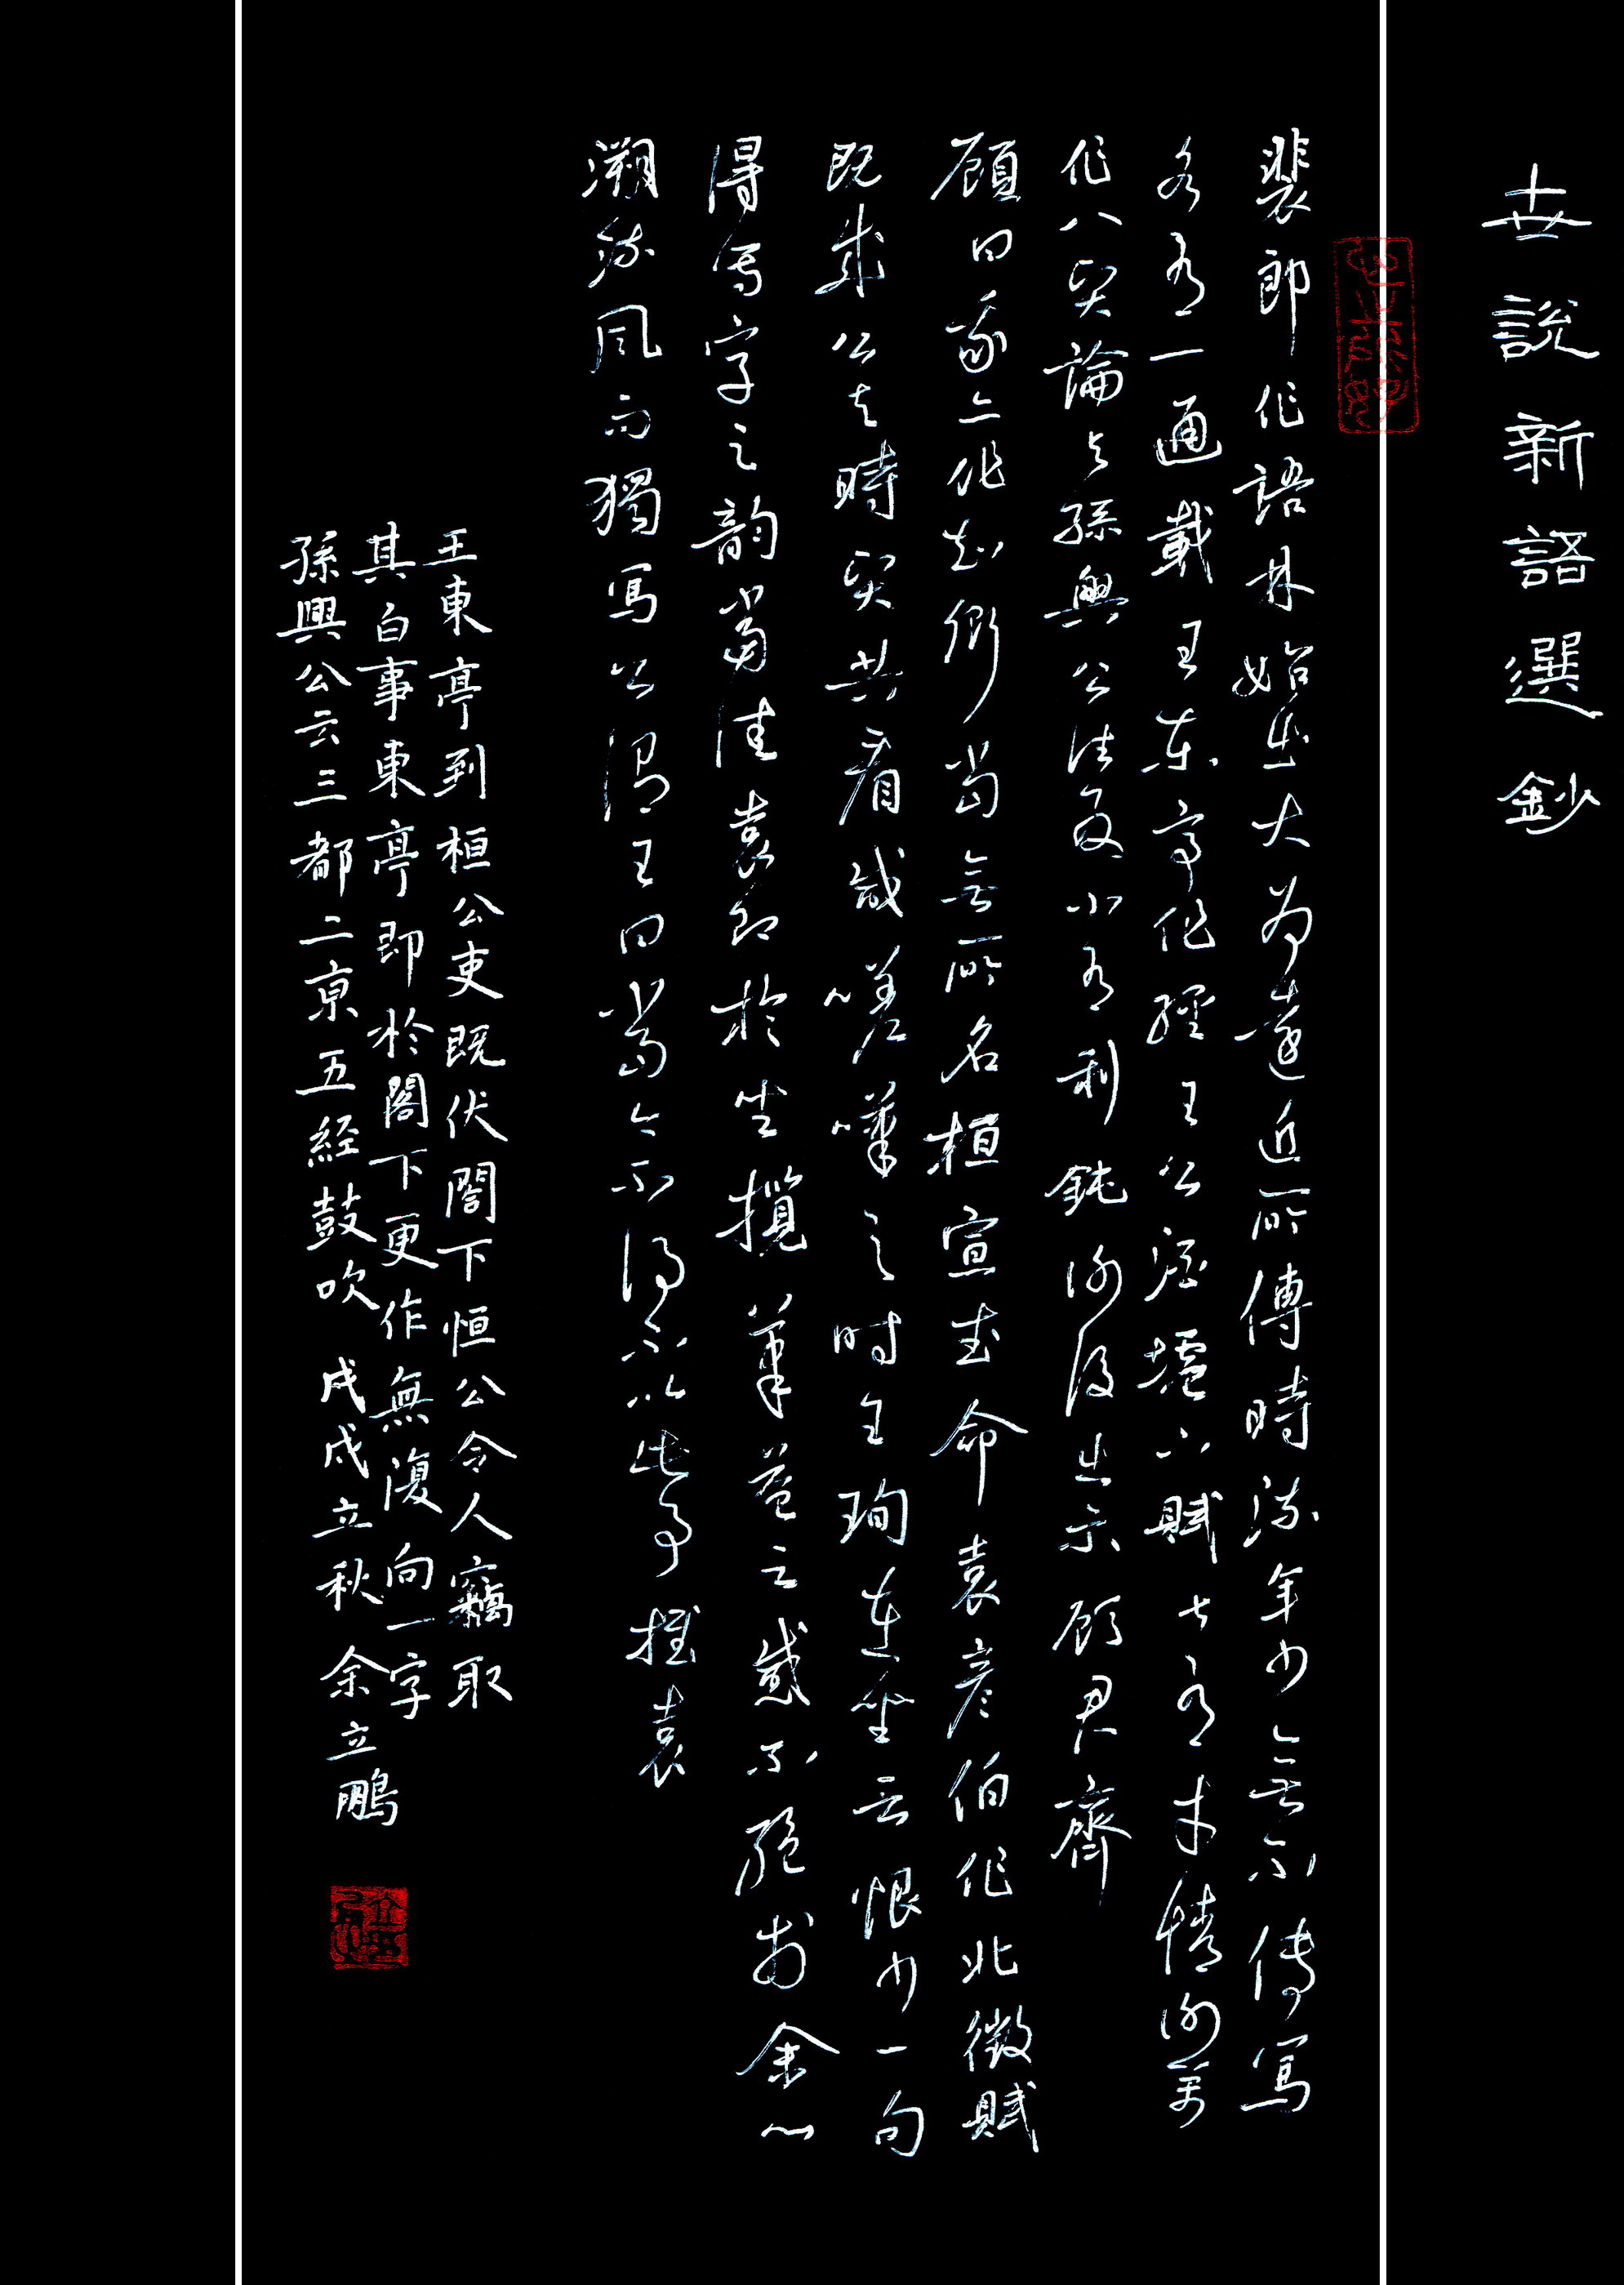 世說新語選鈔
裴郎作語林始出大為遠近所傳時流年少無不傳寫
各有一通載王東亭作經王公酒壚下賦甚有才情謝萬
作八賢論與孫興公往反小有利鈍謝後出示顧君齊
顧曰我亦作知卿當無所名桓宣武命袁彥伯作北徵賦
既成公與時賢共看咸嗟嘆之时王珣在坐云恨少一句
得寫字之韻當佳袁即於坐攬筆益云感不絕於余心
溯流風而獨寫公謂王曰當今不得不以此事推袁
王東亭到桓公吏既伏閤下恒公令人竊取
其白事東亭即於閣下更作無復向一字
孫興公云三都二京五経鼓吹 戊戌立秋 余立鵬